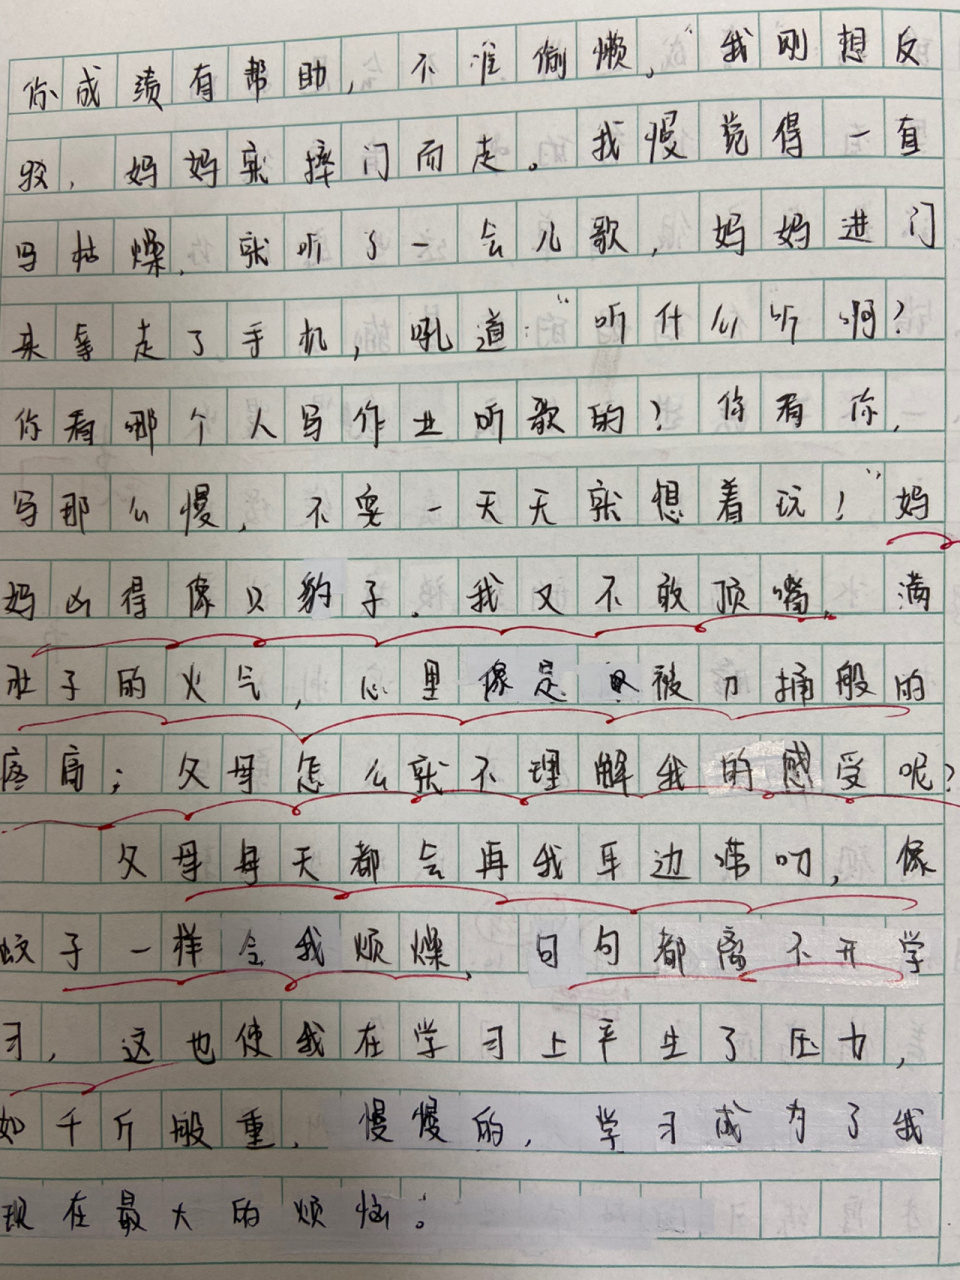 你成绩有帮助，不准偷懒，”我刚想反
驳，妈妈就摔门而走。我慢觉得一直
写枯燥，就听了一会儿歌，妈妈进门
来拿走了手机，吼道：“听什么听啊？
你看哪个人写作业听歌的？你看你，
写那么慢，不要一天天就想着玩！”妈
妈凶得像只豹子。我又不敢顶嘴，满
肚子的火气，心里像是被刀捅般的
疼痛；父母怎么就不理解我的感受呢？
父母每天都会再我耳边唠叨，像
蚊子一样令我烦燥，句句都离不开学
习，这也使我在学习上产生了压力，
如千斤般重，慢慢的，学习成为了我
现在最大的烦恼。